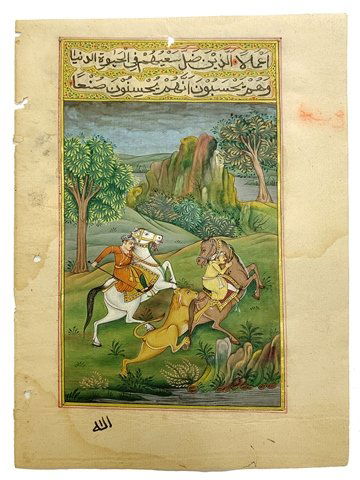 اعملا الذين ضل سعيهم فى الحيوة الدنيا
وهم يحسبون انهم يحسنون صنعا
الله